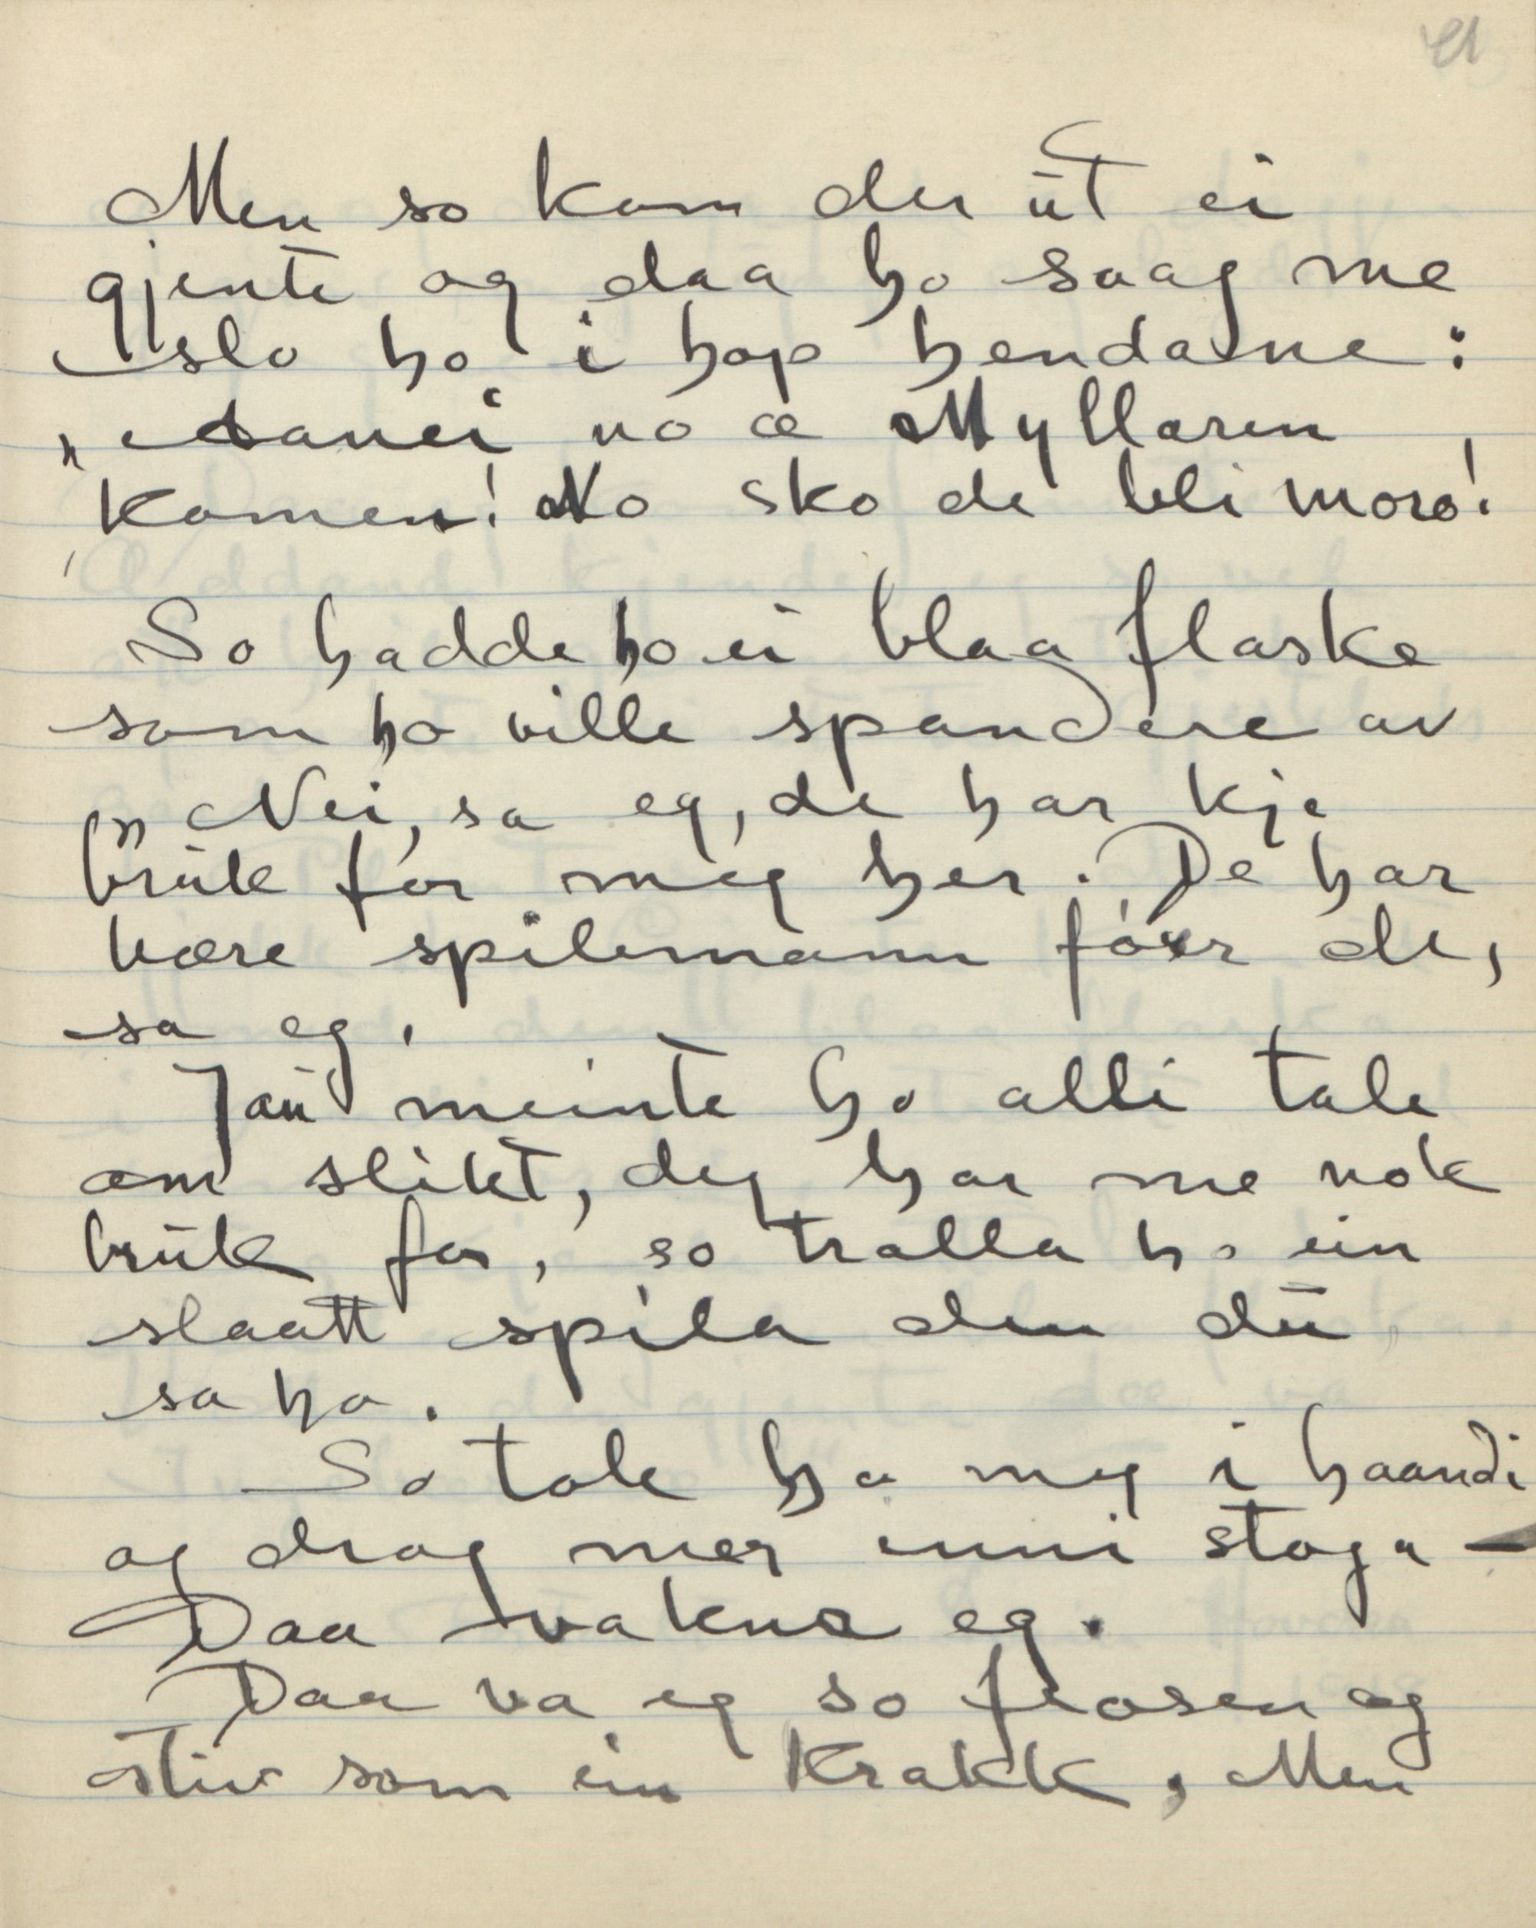 Men so kom der ut ei
gjente og daa ho saag me
slo ho i hop hendarne:
„Aanei no æ Myllaren
komen! No sko de bli moro!
So hadde ho ei blaa flaske
som ho ville spandere av
„Nei, sa eg, de har kje
bruk for meg her. De har
bære spilemann før de,
sa eg.
Jau meinte ho alli tale
om slikt, deg har me nok
bruk for, so tralla ho ein
slaatt spila den du
sa ho.
So tok ho meg i haandi
og drog mer inni stoga –
Daa vakna eg.
Daa va eg so frosen og
stiv som ein Krakk, Men